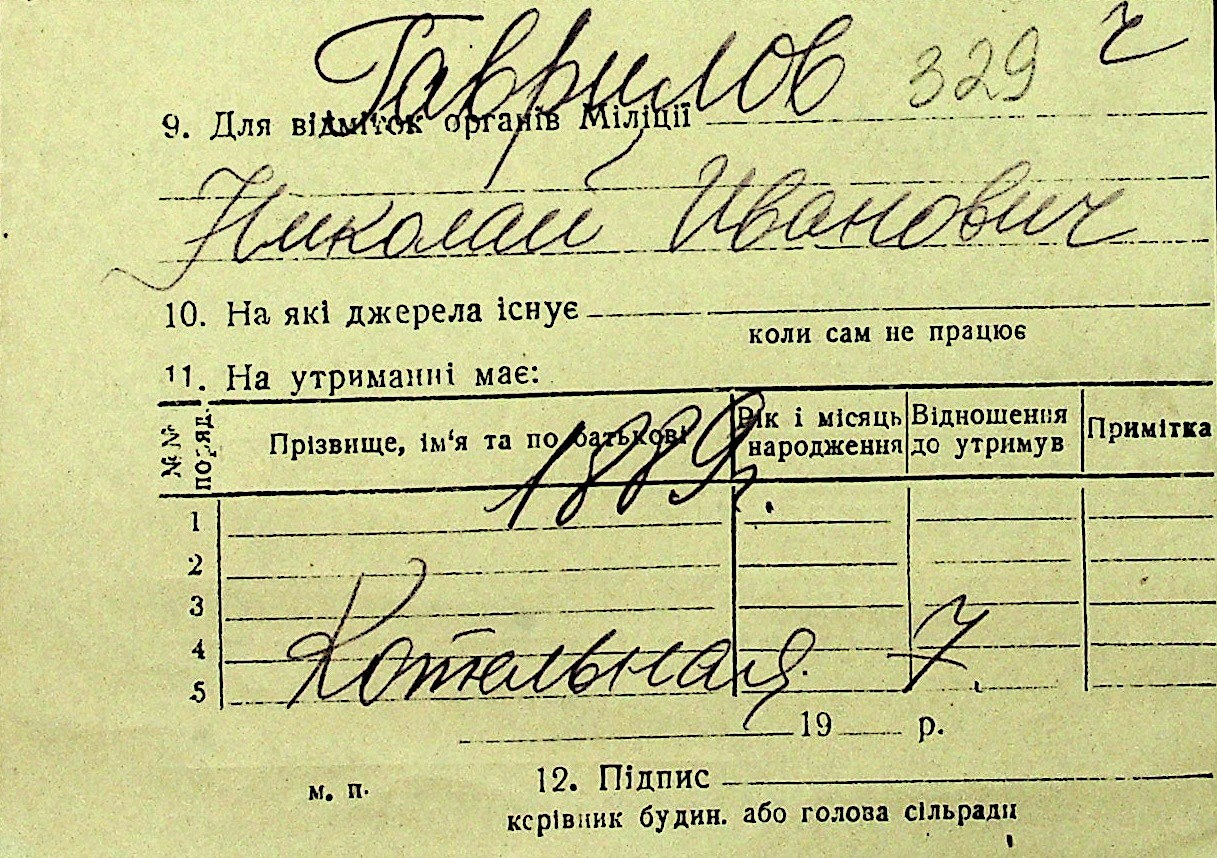 Гаврилов 329 г
9. Для відміток органів Міліції
Николай Иванович
10. На які джерела існує
коли сам не працює
11. На утриманні має:
№№ поряд. Прізвище, ім'я та по батькові Рік і місяць народження Відношення до утримув Примітка
1889 г.
1
2
3
4
5
Котельная 7.
19 р.
м. п. 12. Підпис
керівник будин. або голова сільради